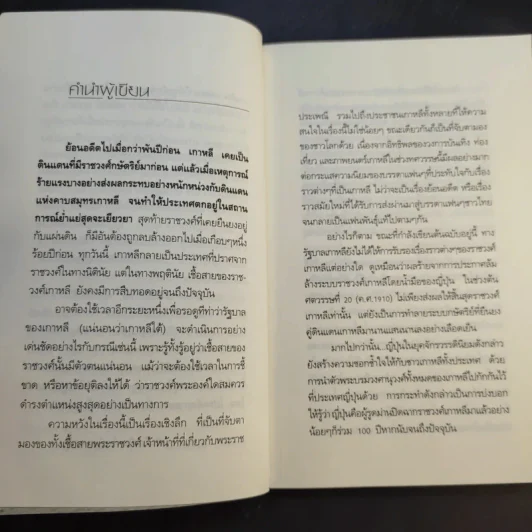 คำนำผู้เขียน
ย้อนอดีตไปเมื่อกว่าพันปีก่อน เกาหลี เคยเป็น
ดินแดนที่มีราชวงศ์กษัตริย์มาก่อน แต่แล้วเมื่อเหตุการณ์
ร้ายแรงบางอย่างส่งผลกระทบอย่างหนักหน่วงกับดินแดน
แห่งคาบสมุทรเกาหลี จนทำให้ประเทศตกอยู่ในสถาน
การณ์ย่ำแย่สุดจะเยียวยา สุดท้ายราชวงศ์ที่เคยยืนยงอยู่
กับแผ่นดิน ก็มีอันต้องถูกลบล้างออกไปเมื่อเกือบๆหนึ่ง
ร้อยปีก่อน ทุกวันนี้ เกาหลีกลายเป็นประเทศที่ปราศจาก
ราชวงศ์ในทางนิตินัย แต่ในทางพฤตินัย เชื้อสายของราช-
วงศ์เกาหลี ยังคงมีการสืบทอดอยู่จนถึงปัจจุบัน
อาจต้องใช้เวลาอีกระยะหนึ่งเพื่อรอดูทีท่าว่ารัฐบาล
ของเกาหลี (แน่นอนว่าเกาหลีใต้) จะดำเนินการอย่าง
เด่นชัดอย่างไรกับกรณีเช่นนี้ เพราะรู้ทั้งรู้อยู่ว่าเชื้อสายของ
ราชวงศ์นั้นมีตัวตนแน่นอน แม้ว่าจะต้องใช้เวลาในการชี้
ขาด หรือหาข้อยุติลงให้ได้ ว่าราชวงศ์พระองค์ใดสมควร
ดำรงตำแหน่งสูงสุดอย่างเป็นทางการ
ความหวังในเรื่องนี้เป็นเรื่องเชิงลึก ที่เป็นที่จับตา
มองของทั้งเชื้อสายพระราชวงศ์ เจ้าหน้าที่ที่เกี่ยวกับพระราช
ประเพณี รวมไปถึงประชาชนเกาหลีทั้งหลายที่ให้ความ
สนใจในเรื่องนี้ไม่ใช่น้อยๆ ขณะเดียวกันก็เป็นที่จับตามอง
ของชาวโลกด้วย เนื่องจากอิทธิพลของวงการบันเทิง ท่อง
เที่ยว และภาพยนตร์เกาหลีในช่วงทศวรรษนี้มีผลอย่างมาก
ต่อกระแสความนิยมของบรรดาแฟนๆที่ประทับใจกับเรื่อง
ราวต่างๆที่เป็นเกาหลี ไม่ว่าจะเป็นเรื่องย้อนอดีต หรือเรื่อง
ราวสมัยใหม่ที่ได้รับการส่งผ่านมาสู่บรรดาแฟนๆชาวไทย
จนกลายเป็นแฟนพันธุ์แท้ไปตามๆกัน
อย่างไรก็ตาม ขณะที่กำลังเขียนต้นฉบับอยู่นี้ ทาง
รัฐบาลเกาหลียังไม่ได้ให้การรับรองเรื่องราวต่างๆของราชวงศ์
เกาหลีแต่อย่างใด ดูเหมือนว่าผลร้ายจากการประกาศล้ม
ล้างระบบราชวงศ์เกาหลีโดยน้ำมือของญี่ปุ่น ในช่วงต้น
ศตวรรษที่ 20 (ค.ศ.1910) ไม่เพียงส่งผลให้สิ้นสุดราชวงศ์
เกาหลีเท่านั้น แต่ยังเป็นการทำลายระบบกษัตริย์ที่ยืนยง
คู่ดินแดนเกาหลีมานานแสนนานลงอย่างเลือดเย็น
มากไปกว่านั้น ญี่ปุ่นในยุคจักรวรรดินิยมดังกล่าว
ยังสร้างความชอกช้ำใจให้กับชาวเกาหลีทั้งประเทศ ด้วย
การนำตัวพระบรมวงศานุวงศ์ทั้งหมดของเกาหลีไปกักกันไว้
ที่ประเทศญี่ปุ่นด้วย การกระทำดังกล่าวเป็นการบ่งบอก
ให้รู้ว่าญี่ปุ่นคือผู้รูดม่านปิดฉากราชวงศ์เกาหลีมาแล้วอย่าง
น้อยๆก็ร่วม 100 ปีหากนับจนถึงปัจจุบัน